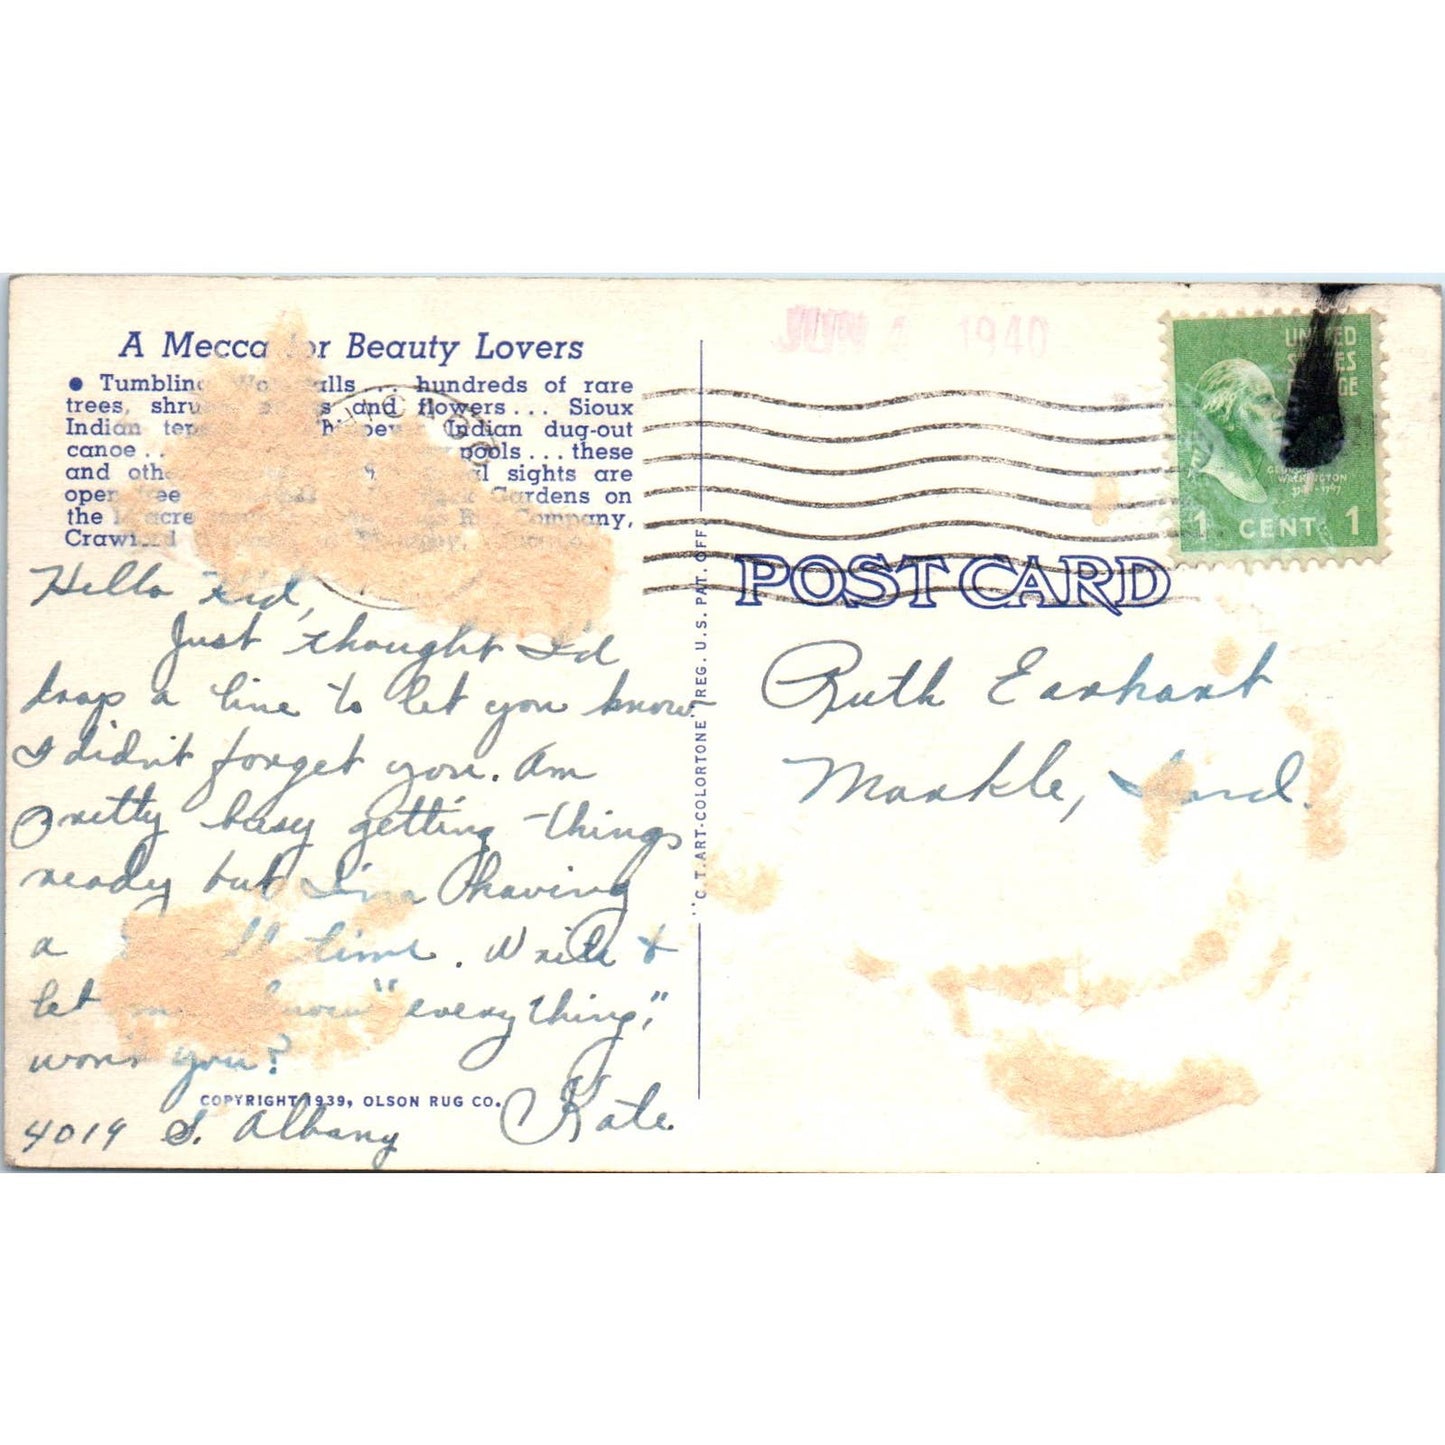 A Mecca for Beauty Lovers
● Tumbling Waterfalls ... hundreds of rare
trees, shrubs and flowers ... Sioux
Indian Indian dug-out
canoe .. pools ... these
and other sights are
open free Gardens on
the acre Rug Company,
Crawford
Hello Kid,
Just thought I'd
drop a line to let you know
I didn't forget you. Am
pretty busy getting things
ready but I'm having
a time. Write &
let me know "everything,"
won't you?
Kate.
4019 S. Albany
COPYRIGHT 1939, OLSON RUG CO.
"C. T. ART-COLORTONE" REG. U.S. PAT. OFF.
JUN 1940
CHICAGO
UNITED
STATES
POSTAGE
GEORGE
WASHINGTON
1 CENT 1
POST CARD
Ruth Earhart
Markle, Ind.